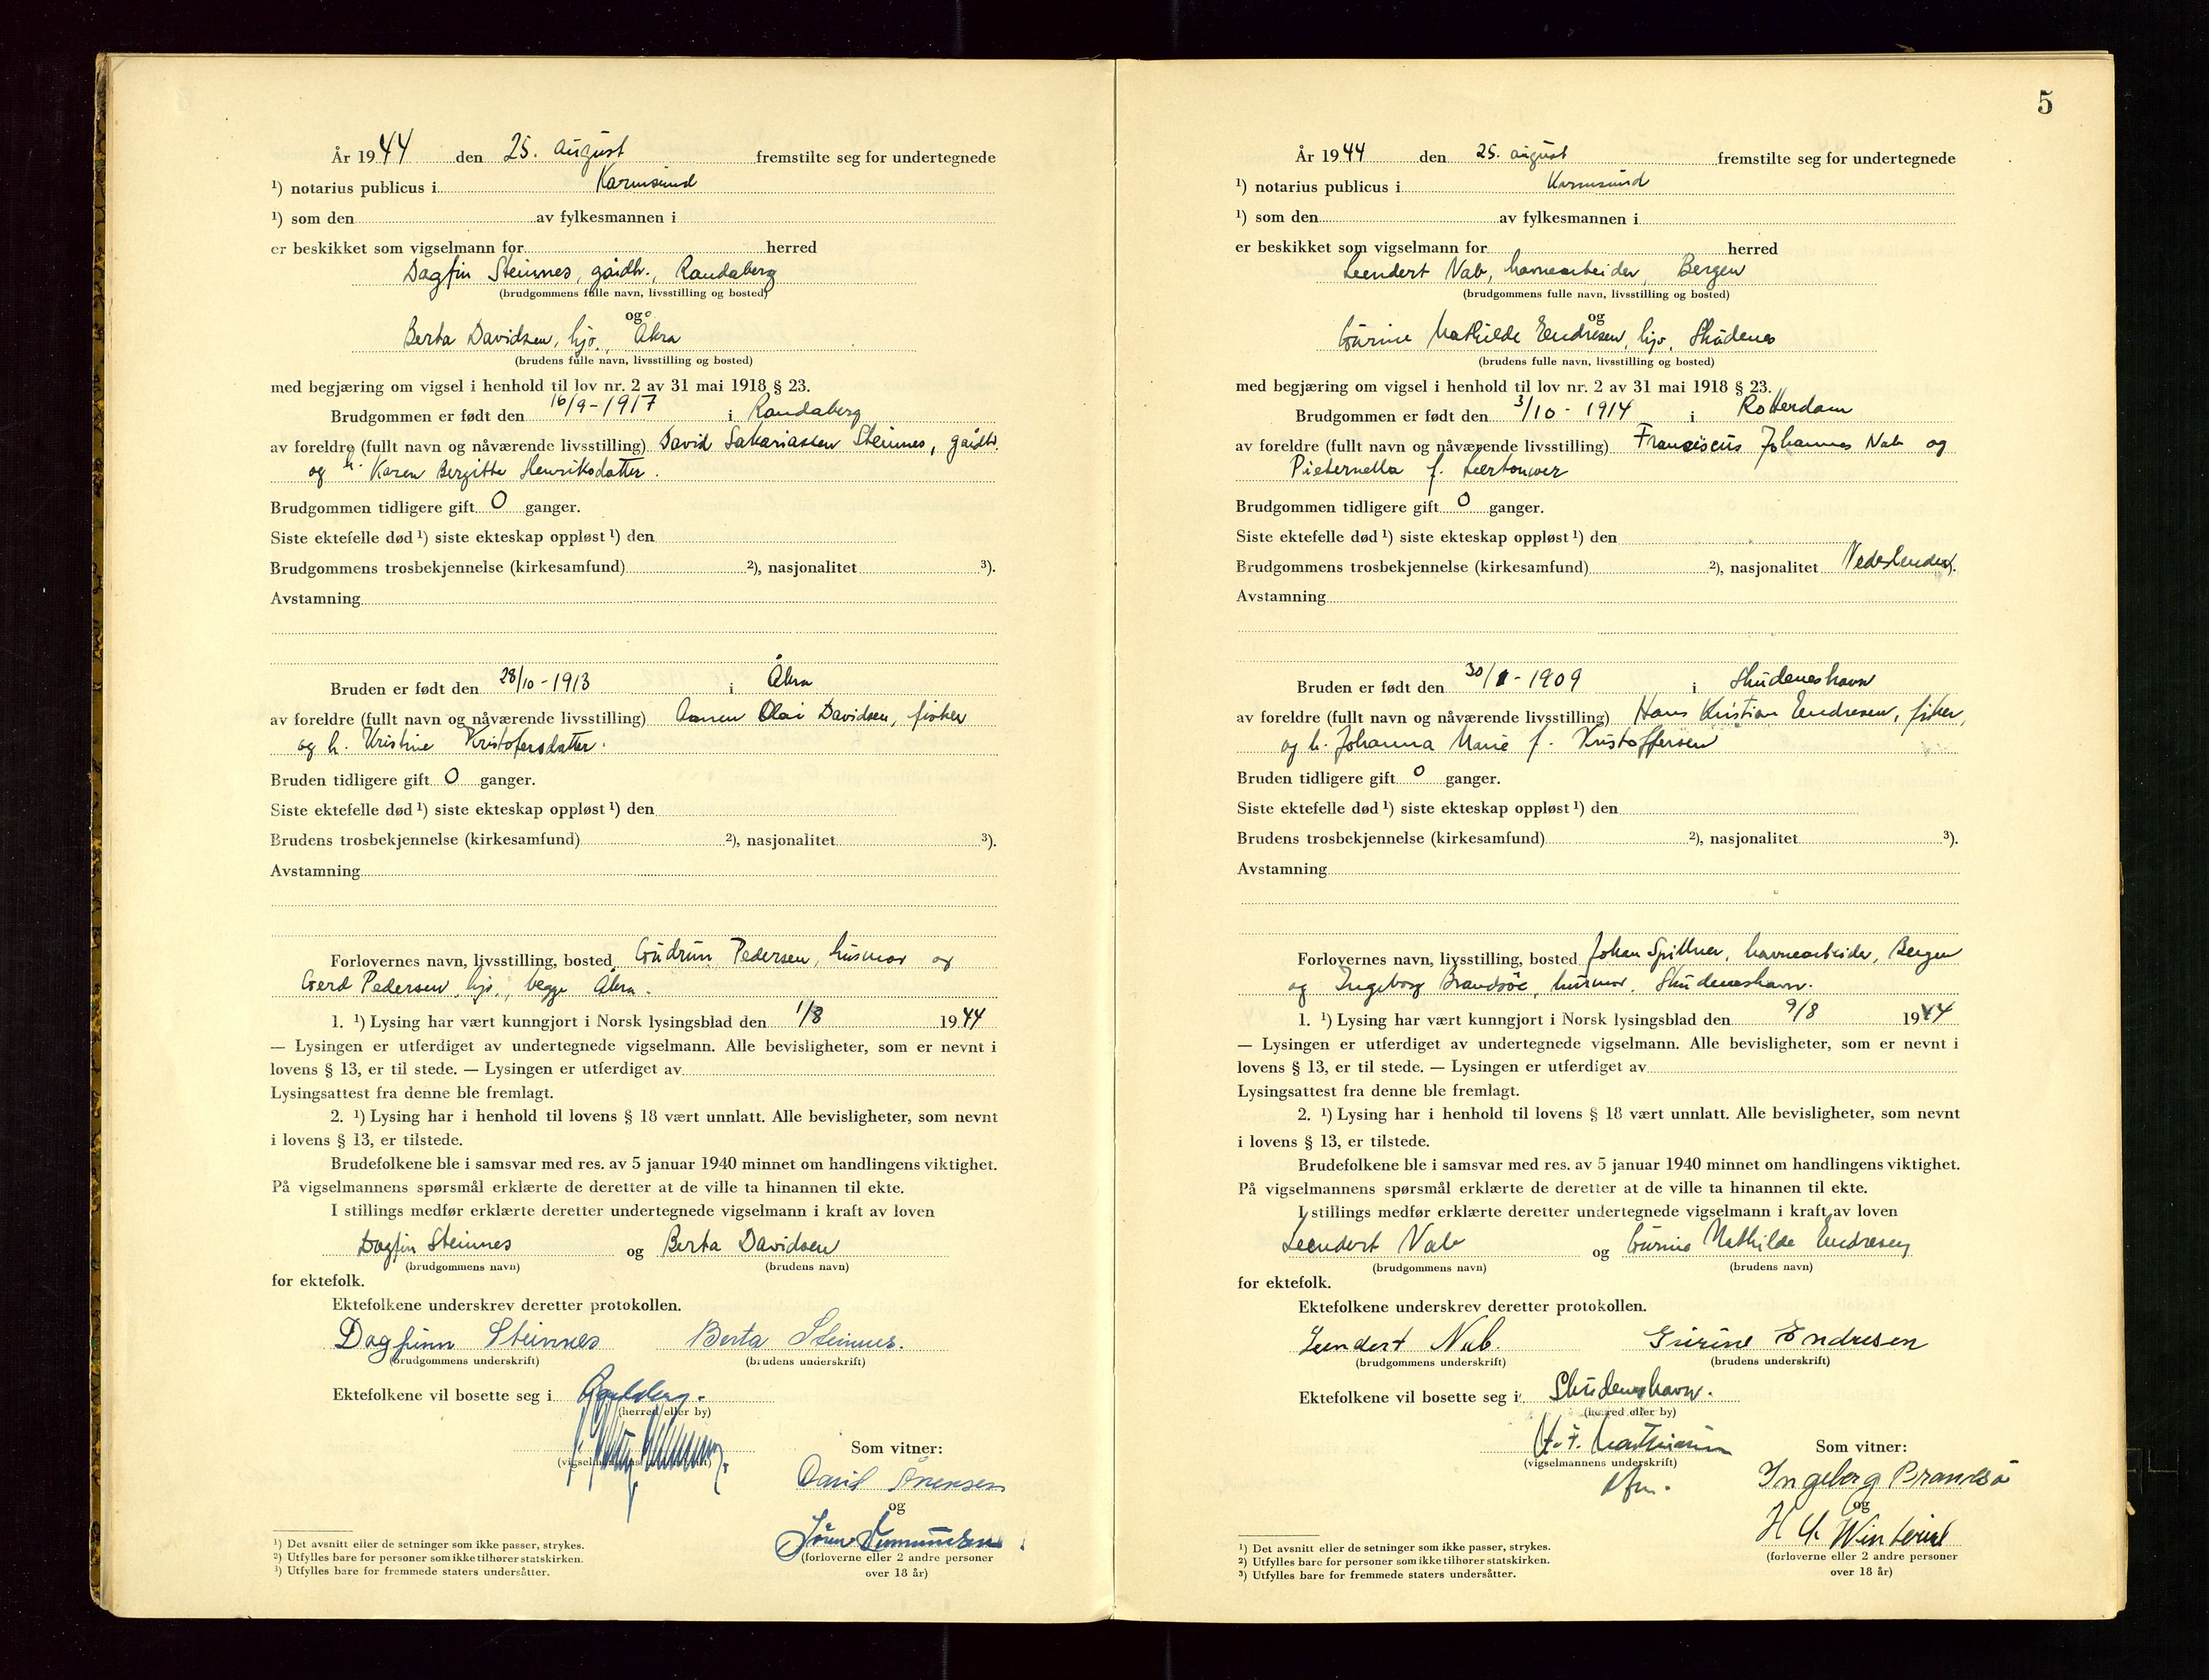 År 1944 den 25. august fremstilte seg for undertegnede
¹) notarius publicus i Karmsund
¹) som den av fylkesmannen i
er beskikket som vigselmann for herred
Dagfin Steinnes, gårdbr., Randaberg
(brudgommens fulle navn, livsstilling og bosted)
og
Berta Davidsen, hjv., Åkra
(brudens fulle navn, livsstilling og bosted)
med begjæring om vigsel i henhold til lov nr. 2 av 31 mai 1918 § 23.
Brudgommen er født den 16/9-1917 i Randaberg
av foreldre (fullt navn og nåværende livsstilling) David Sakariassen Steinnes, gårdbr.
og h. Karen Bergitte Henriksdatter.
Brudgommen tidligere gift 0 ganger.
Siste ektefelle død ¹) siste ekteskap oppløst ¹) den
Brudgommens trosbekjennelse (kirkesamfund) ²), nasjonalitet ³).
Avstamning
Bruden er født den 28/10-1913 i Åkra
av foreldre (fullt navn og nåværende livsstilling) Olai Davidsen, fisker
og h. Kristine Kristofersdatter.
Bruden tidligere gift 0 ganger.
Siste ektefelle død ¹) siste ekteskap oppløst ¹) den
Brudens trosbekjennelse (kirkesamfund) ²), nasjonalitet ³).
Avstamning
Forlovernes navn, livsstilling, bosted Gudrun Pedersen, husmor og
Gerd Pedersen, hjv., begge Åkra.
1. ¹) Lysing har vært kunngjort i Norsk lysingsblad den 1/8 1944
— Lysingen er utferdiget av undertegnede vigselmann. Alle bevisligheter, som er nevnt i
lovens § 13, er til stede. — Lysingen er utferdiget av
Lysingsattest fra denne ble fremlagt.
2. ¹) Lysing har i henhold til lovens § 18 vært unnlatt. Alle bevisligheter, som nevnt
i lovens § 13, er tilstede.
Brudefolkene ble i samsvar med res. av 5 januar 1940 minnet om handlingens viktighet.
På vigselmannens spørsmål erklærte de deretter at de ville ta hinannen til ekte.
I stillings medfør erklærte deretter undertegnede vigselmann i kraft av loven
Dagfin Steinnes og Berta Davidsen
(brudgommens navn) (brudens navn)
for ektefolk.
Ektefolkene underskrev deretter protokollen.
Dagfinn Steinnes Berta Steinnes.
(brudgommens underskrift) (brudens underskrift)
Ektefolkene vil bosette seg i
(herred eller by)
Som vitner:
(vigselmannens underskrift)
og
(forloverne eller 2 andre personer
over 18 år)
¹) Det avsnitt eller de setninger som ikke passer, strykes.
²) Utfylles bare for personer som ikke tilhører statskirken.
³) Utfylles bare for fremmede staters undersåtter.
5
År 1944 den 25. august fremstilte seg for undertegnede
¹) notarius publicus i Karmsund
¹) som den av fylkesmannen i
er beskikket som vigselmann for herred
Leendert Nab, havnearbeider, Bergen
(brudgommens fulle navn, livsstilling og bosted)
og
Gurine Mathilde Endresen, hjv., Skudenes
(brudens fulle navn, livsstilling og bosted)
med begjæring om vigsel i henhold til lov nr. 2 av 31 mai 1918 § 23.
Brudgommen er født den 3/10-1914 i Rotterdam
av foreldre (fullt navn og nåværende livsstilling) Franciscus Johannes Nab og
Pieternella f. Leertouwer
Brudgommen tidligere gift 0 ganger.
Siste ektefelle død ¹) siste ekteskap oppløst ¹) den
Brudgommens trosbekjennelse (kirkesamfund) ²), nasjonalitet Nederlender.
Avstamning
Bruden er født den 30/1-1909 i Skudeneshavn
av foreldre (fullt navn og nåværende livsstilling) Hans Kristian Endresen, fisker,
og h. Johanna Marie f. Kristoffersen
Bruden tidligere gift 0 ganger.
Siste ektefelle død ¹) siste ekteskap oppløst ¹) den
Brudens trosbekjennelse (kirkesamfund) ²), nasjonalitet ³).
Avstamning
Forlovernes navn, livsstilling, bosted Johan Spillner, havnearbeider, Bergen
og Ingeborg Brandsøe, husmor, Skudeneshavn.
1. ¹) Lysing har vært kunngjort i Norsk lysingsblad den 9/8 1944
— Lysingen er utferdiget av undertegnede vigselmann. Alle bevisligheter, som er nevnt i
lovens § 13, er til stede. — Lysingen er utferdiget av
Lysingsattest fra denne ble fremlagt.
2. ¹) Lysing har i henhold til lovens § 18 vært unnlatt. Alle bevisligheter, som nevnt
i lovens § 13, er tilstede.
Brudefolkene ble i samsvar med res. av 5 januar 1940 minnet om handlingens viktighet.
På vigselmannens spørsmål erklærte de deretter at de ville ta hinannen til ekte.
I stillings medfør erklærte deretter undertegnede vigselmann i kraft av loven
Leendert Nab og Gurine Mathilde Endresen
(brudgommens navn) (brudens navn)
for ektefolk.
Ektefolkene underskrev deretter protokollen.
Leendert Nab. Gurine Endresen
(brudgommens underskrift) (brudens underskrift)
Ektefolkene vil bosette seg i Skudeneshavn.
(herred eller by)
Som vitner:
(vigselmannens underskrift)
Ingeborg Brandsø
og
(forloverne eller 2 andre personer
over 18 år)
¹) Det avsnitt eller de setninger som ikke passer, strykes.
²) Utfylles bare for personer som ikke tilhører statskirken.
³) Utfylles bare for fremmede staters undersåtter.